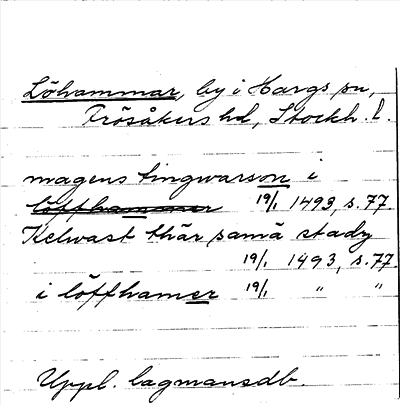 Löhammar, by i Hargs sn,
Frösåkers hd, Stockh. l.
magens tingwarson i
löffhammer 19/1 1493, s. 77
Kelwast thär samä stady
19/1 1493, s. 77
i löffhamer 19/1 " "
Uppl. lagmansdb.